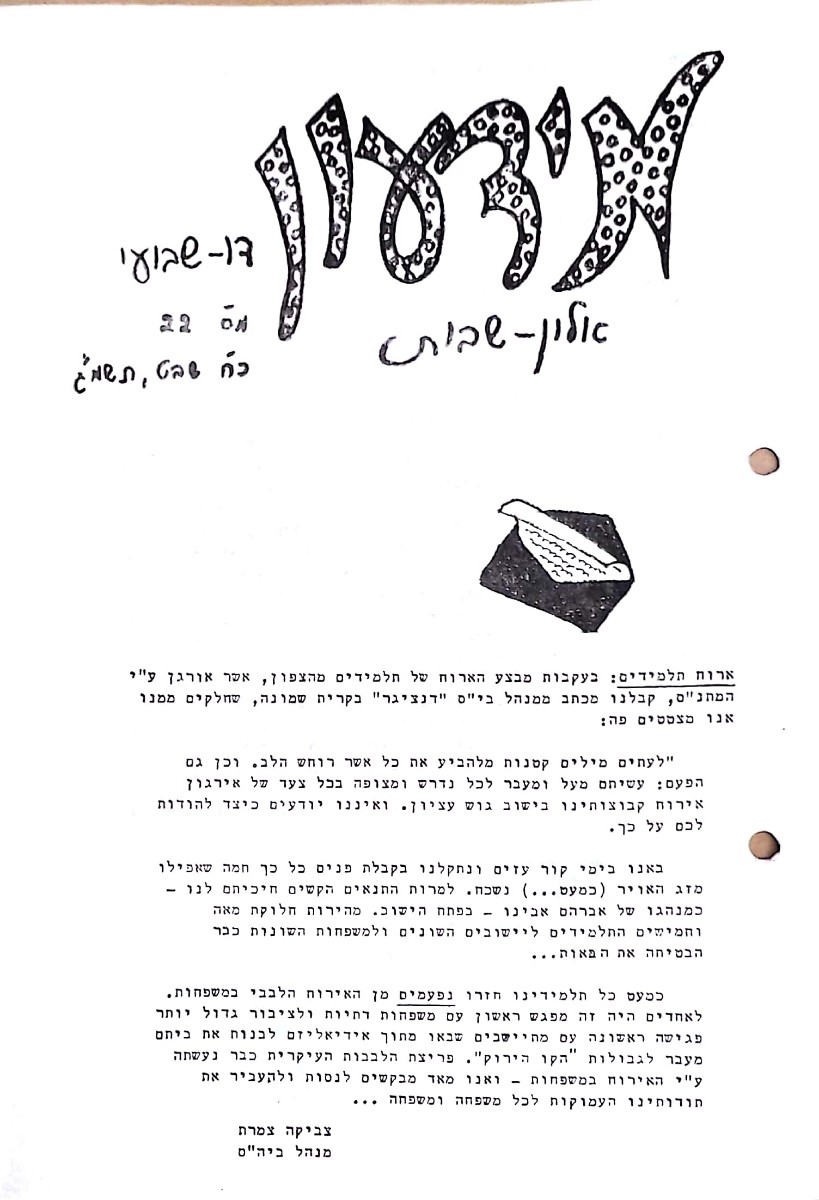 מידעון
דו-שבועי
אלון-שבות
מס 22
כח שבט, תשמ"ג
ארוח תלמידים: בעקבות מבצע הארוח של תלמידים מהצפון, אשר אורגן ע"י
המתנ"ס, קבלנו מכתב ממנהל בי"ס "דנציגר" בקרית שמונה, שחלקים ממנו
אנו מצטטים פה:
"לעתים מילים קטנות מלהביע את כל אשר רוחש הלב. וכן גם
הפעם: עשיתם מעל ומעבר לכל נדרש ומצופה בכל צעד של אירגון
אירוח קבוצותינו בישוב גוש עציון. ואיננו יודעים כיצד להודות
לכם על כך.
באנו בימי קור עזים ונתקלנו בקבלת פנים כל כך חמה שאפילו
מזג האויר (כמעט...) נשכח. למרות התנאים הקשים חיכיתם לנו -
כמנהגו של אברהם אבינו - בפתח הישוב. מהירות חלוקת מאה
וחמישים התלמידים ליישובים השונים ולמשפחות השונות כבר
הבטיחה את הבאות...
כמעט כל תלמידינו חזרו נפעמים מן האירוח הלבבי במשפחות.
לאחדים היה זה מפגש ראשון עם משפחות דתיות ולציבור גדול יותר
פגישה ראשונה עם מתיישבים שבאו מתוך אידיאליזם לבנות את ביתם
מעבר לגבולות "הקו הירוק". פריצת הלבבות העיקרית כבר נעשתה
ע"י האירוח במשפחות - ואנו מאד מבקשים לנסות ולהעביר את
תודותינו העמוקות לכל משפחה ומשפחה ...
צביקה צמרת
מנהל ביה"ס